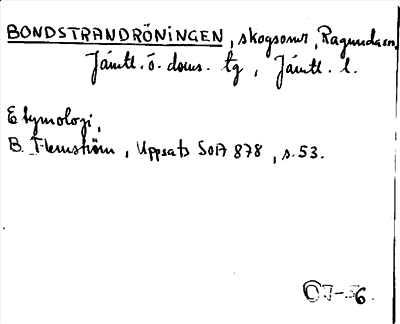 BONDSTRANDRÖNINGEN, skogsomr, Ragunda sn,
Jämtl. ö. doms. tg, Jämtl. l.
Etymologi,
B. Flemström, Uppsats SOA 878, s. 53.